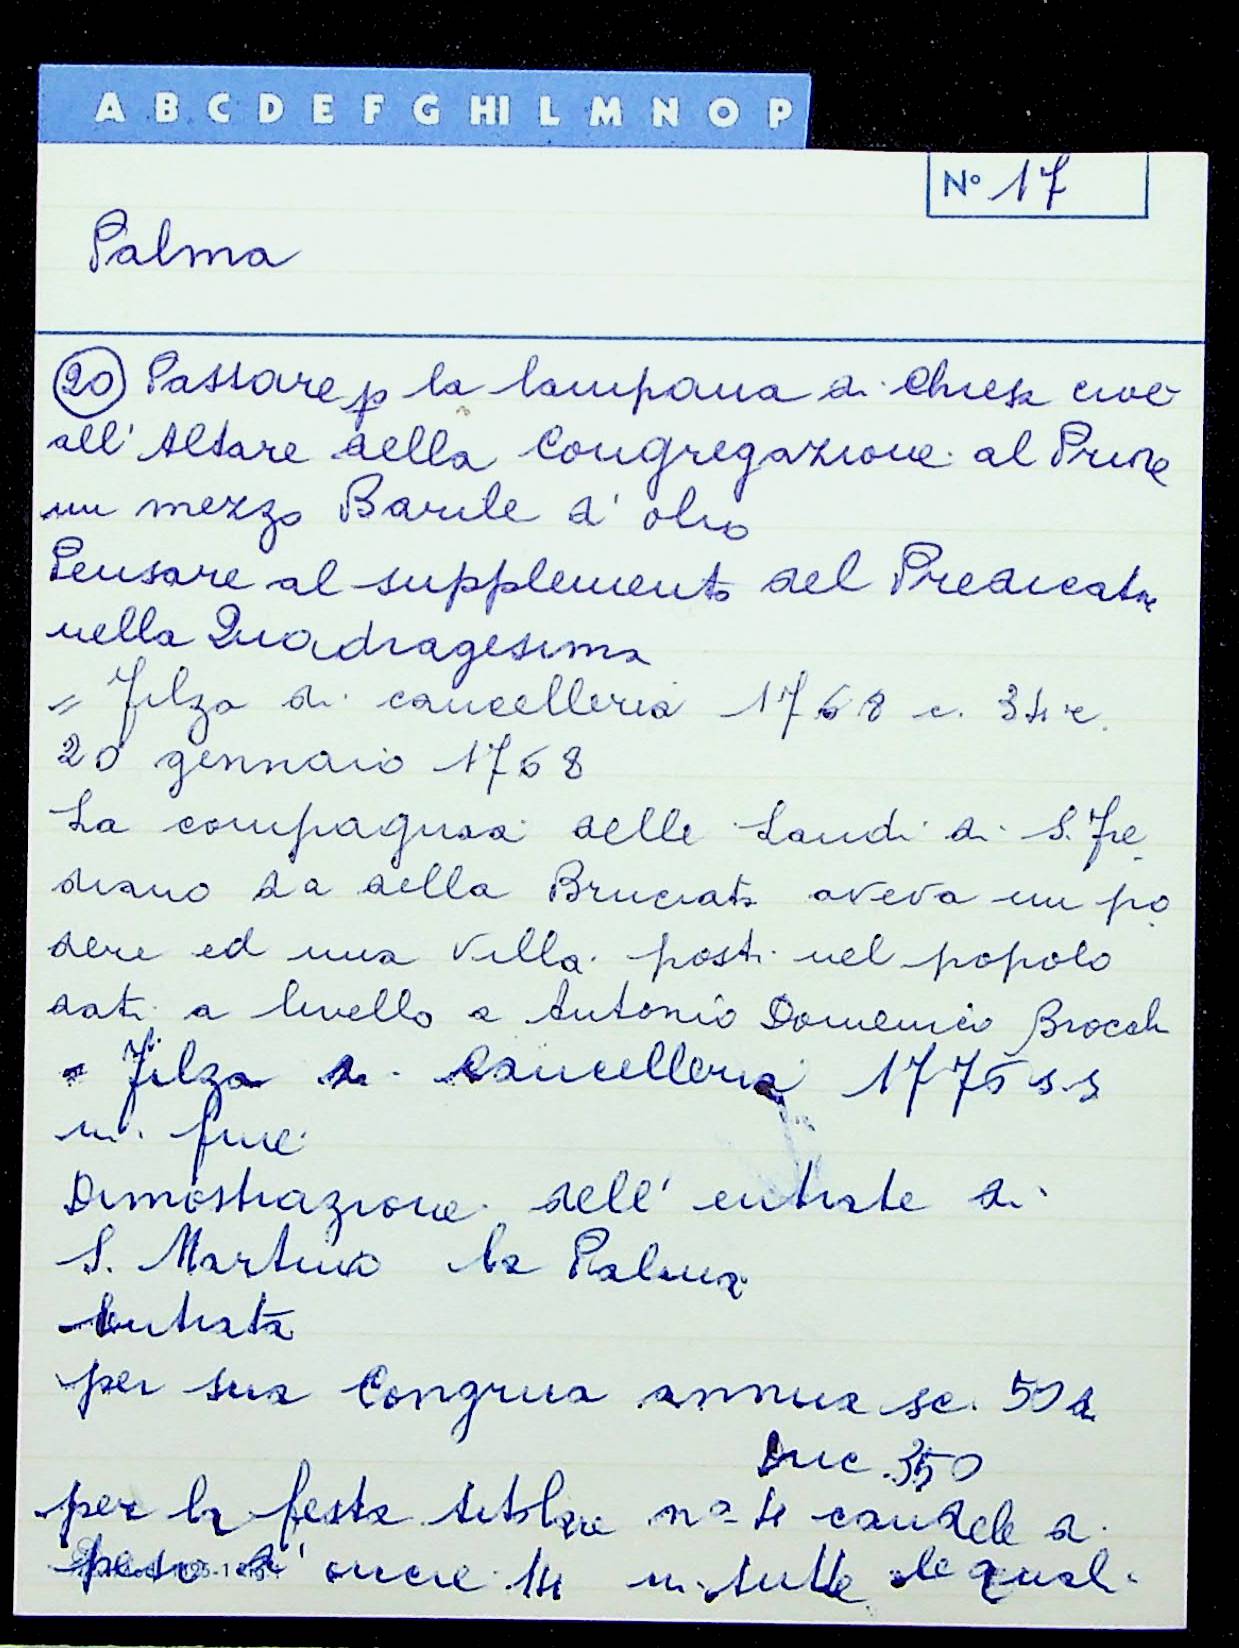 A B C D E F G HI L M N O P
N° 17
Palma
20 Passare p la lampana di Chiesa cioè
all'Altare della Congregazione al Priore
un mezzo Barile d'olio
Pensare al supplemento del Predicatore
nella Quadragesima
= Filza di cancelleria 1768 c. 34 r.
20 gennaio 1768
La compagnia delle Laudi di S. Fre
diano da della Bruciata aveva un po
dere ed una villa posti nel popolo
dati a livello a Antonio Domenico Brocchi
= Filza di cancelleria 1775 s.s
in fine
Dimostrazione dell'entrate di
S. Martino la Palma
Entrata
per sua Congrua annua sc. 50 d
Duc. 350
per la festa titolare n° 4 candele di
peso d'oncie 14 in tutte le quali